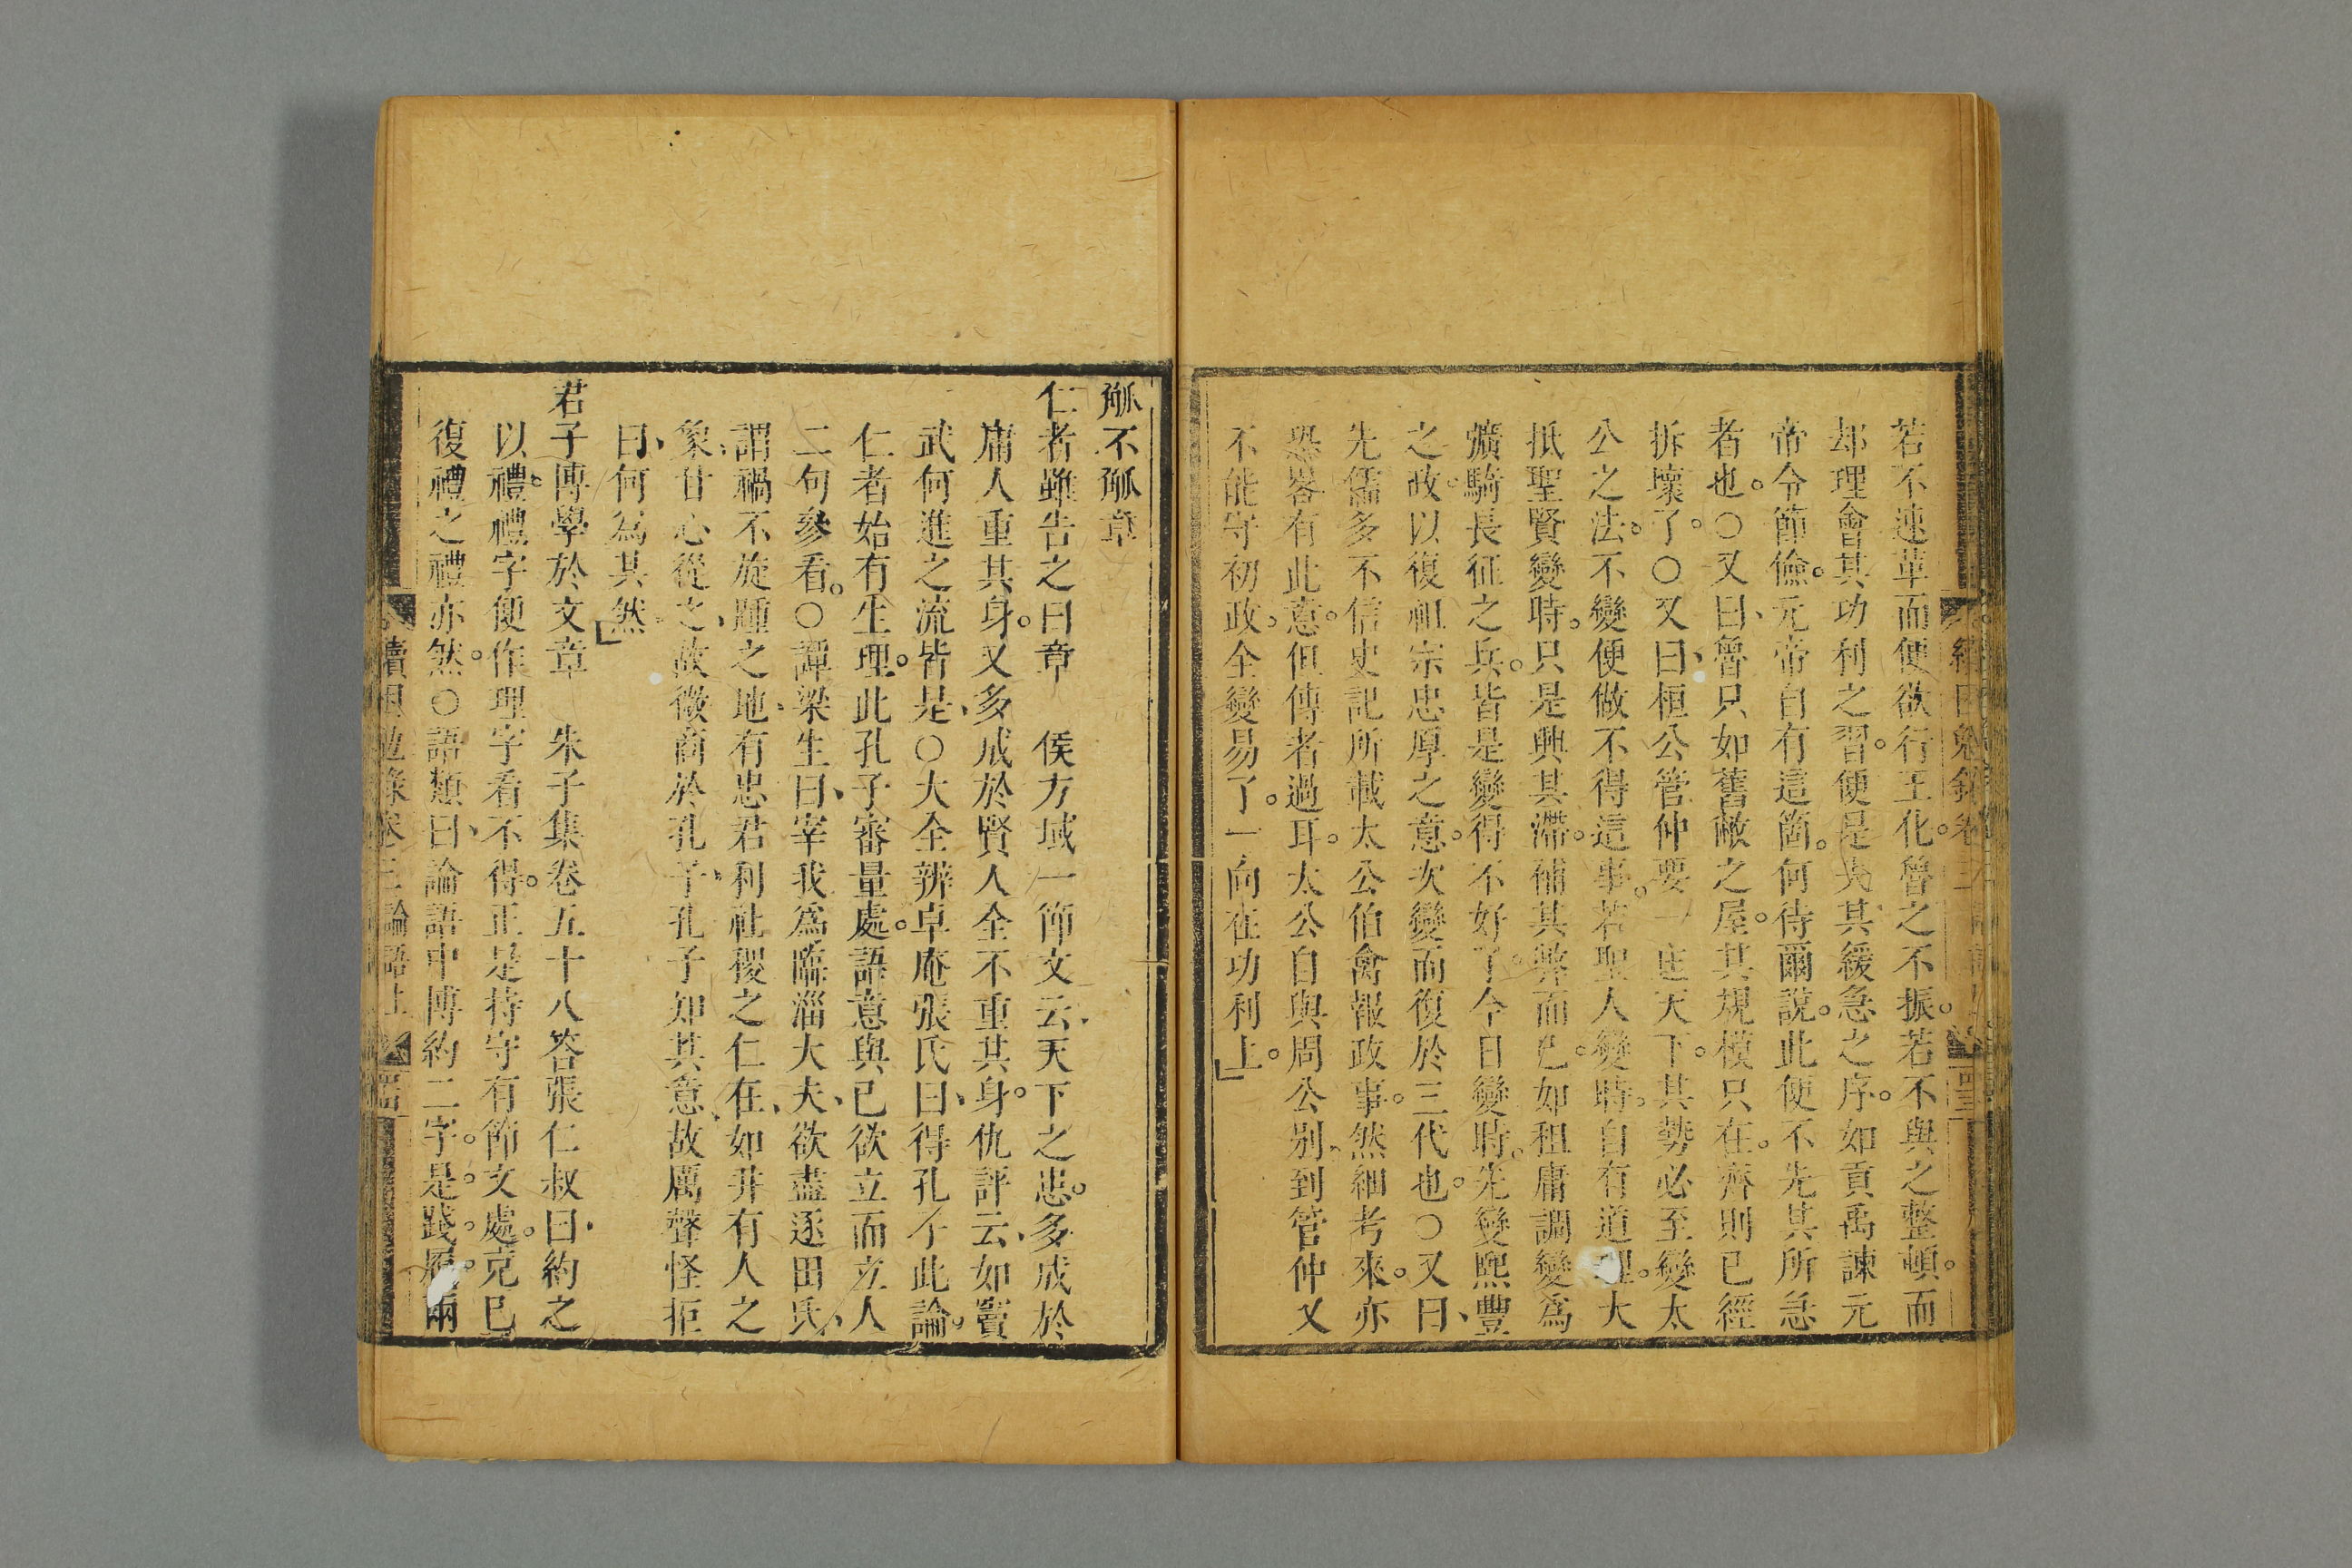 若不速革而便欲行王化。魯之不振。若不與之整頓。而
却理會其功利之習。便是失其緩急之序。如貢禹諫元
帝令節儉。元帝自有這箇。何待爾說。此便不先其所急
者也。○又曰、魯只如舊敝之屋。其規模只在。齊則已經
拆壞了。○又曰、桓公管仲要一匡天下。其勢必至變太
公之法。不變便做不得這事。若聖人變時。自有道理。大
抵聖賢變時。只是興其滯。補其弊而已。如租庸調變為
彍騎長征之兵。皆是變得不好了。今日變時。先變熙豐
之政。以復祖宗忠厚之意。次變而復於三代也。○又曰、
先儒多不信史記所載太公伯禽報政事。然細考來。亦
恐畧有此意。但傳者過耳。太公自與周公別、到管仲又
不能守初政。全變易了。一向在功利上。」
觚不觚章
仁者雖告之曰章　侯方域一節文云、天下之忠。多成於
庸人重其身。又多成於賢人全不重其身。仇評云、如竇
武何進之流皆是、○大全辨卓庵張氏曰、得孔子此論。
仁者始有生理。此孔子審量處。語意與已欲立而立人
二句參看。○譚梁生曰、宰我為臨淄大夫、欲盡逐田氏、
謂禍不旋踵之地、有忠君利社稷之仁在、如井有人之
象、甘心從之、故微商於孔子、孔子知其意、故厲聲怪拒
曰、何為其然」
君子博學於文章　朱子集卷五十八答張仁叔曰、約之
以禮。禮字便作理字看不得。正是持守有節文處。克己
復禮之禮亦然。○語類曰、論語中博約二字。是踐履爾
續困勉錄卷三論語上